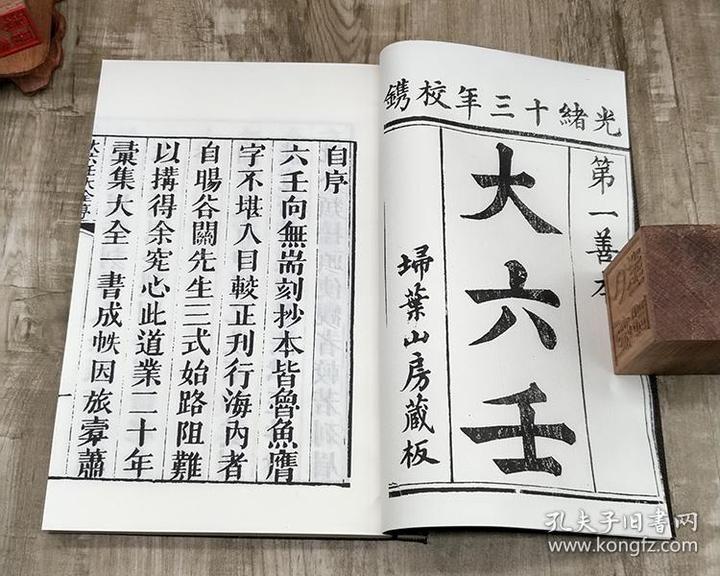 光緒十三年校鐫
第一善本
大六壬
埽葉山房藏板
自序
六壬向無耑刻抄本皆魯魚膺
字不堪入目較正刊行海內者
自暘谷關先生三式始路阻難
以搆得余究心此道業二十年
彚集大全一書成帙因旅橐蕭
大六壬大全序
孔夫子旧书网
www.kongfz.com